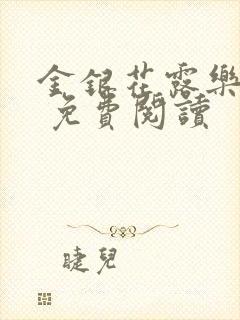 金銀花露樂
免費閱讀
睫兒